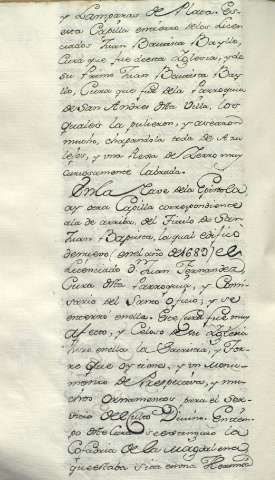 y Lamparas de Plata. Es
esta Capilla entierro de los Licen
ciados Juan Bautista Bayllo,
Cura que fue desta Iglesia, y de
su Primo Juan Bautista Bay
llo, Cura que fue de la Parroquia
de San Andres dha Villa, los
quales la pulieron, y asearon
mucho, chapandola toda de Azu
lejos, y una Rexa de Yerro muy
curiosamente labrada.
En la Nave de la Epistola
ay otra Capilla correspondiente
a la de arriba, del Titulo de San
Juan Baptista, la qual edifico
de nuevo, en el año de 1689, el
Licenciado D. Juan Fernandez,
Cura dha Parroquia, y Comi
sario del Santo Oficio, y se
enterro en ella. Este cura fue muy
afecto, y Celoso de su Iglesia
hizo en ella la Sacristia, y Torre
que oy tiene, y un Monu
mento de Perspectiva, y mu
chos ornamentos para el Ser
vicio del Culto Divino. En tiem
po deste Cura se extinguio la
Cofadria de la Magdalena
que estaba sita en una Hermita